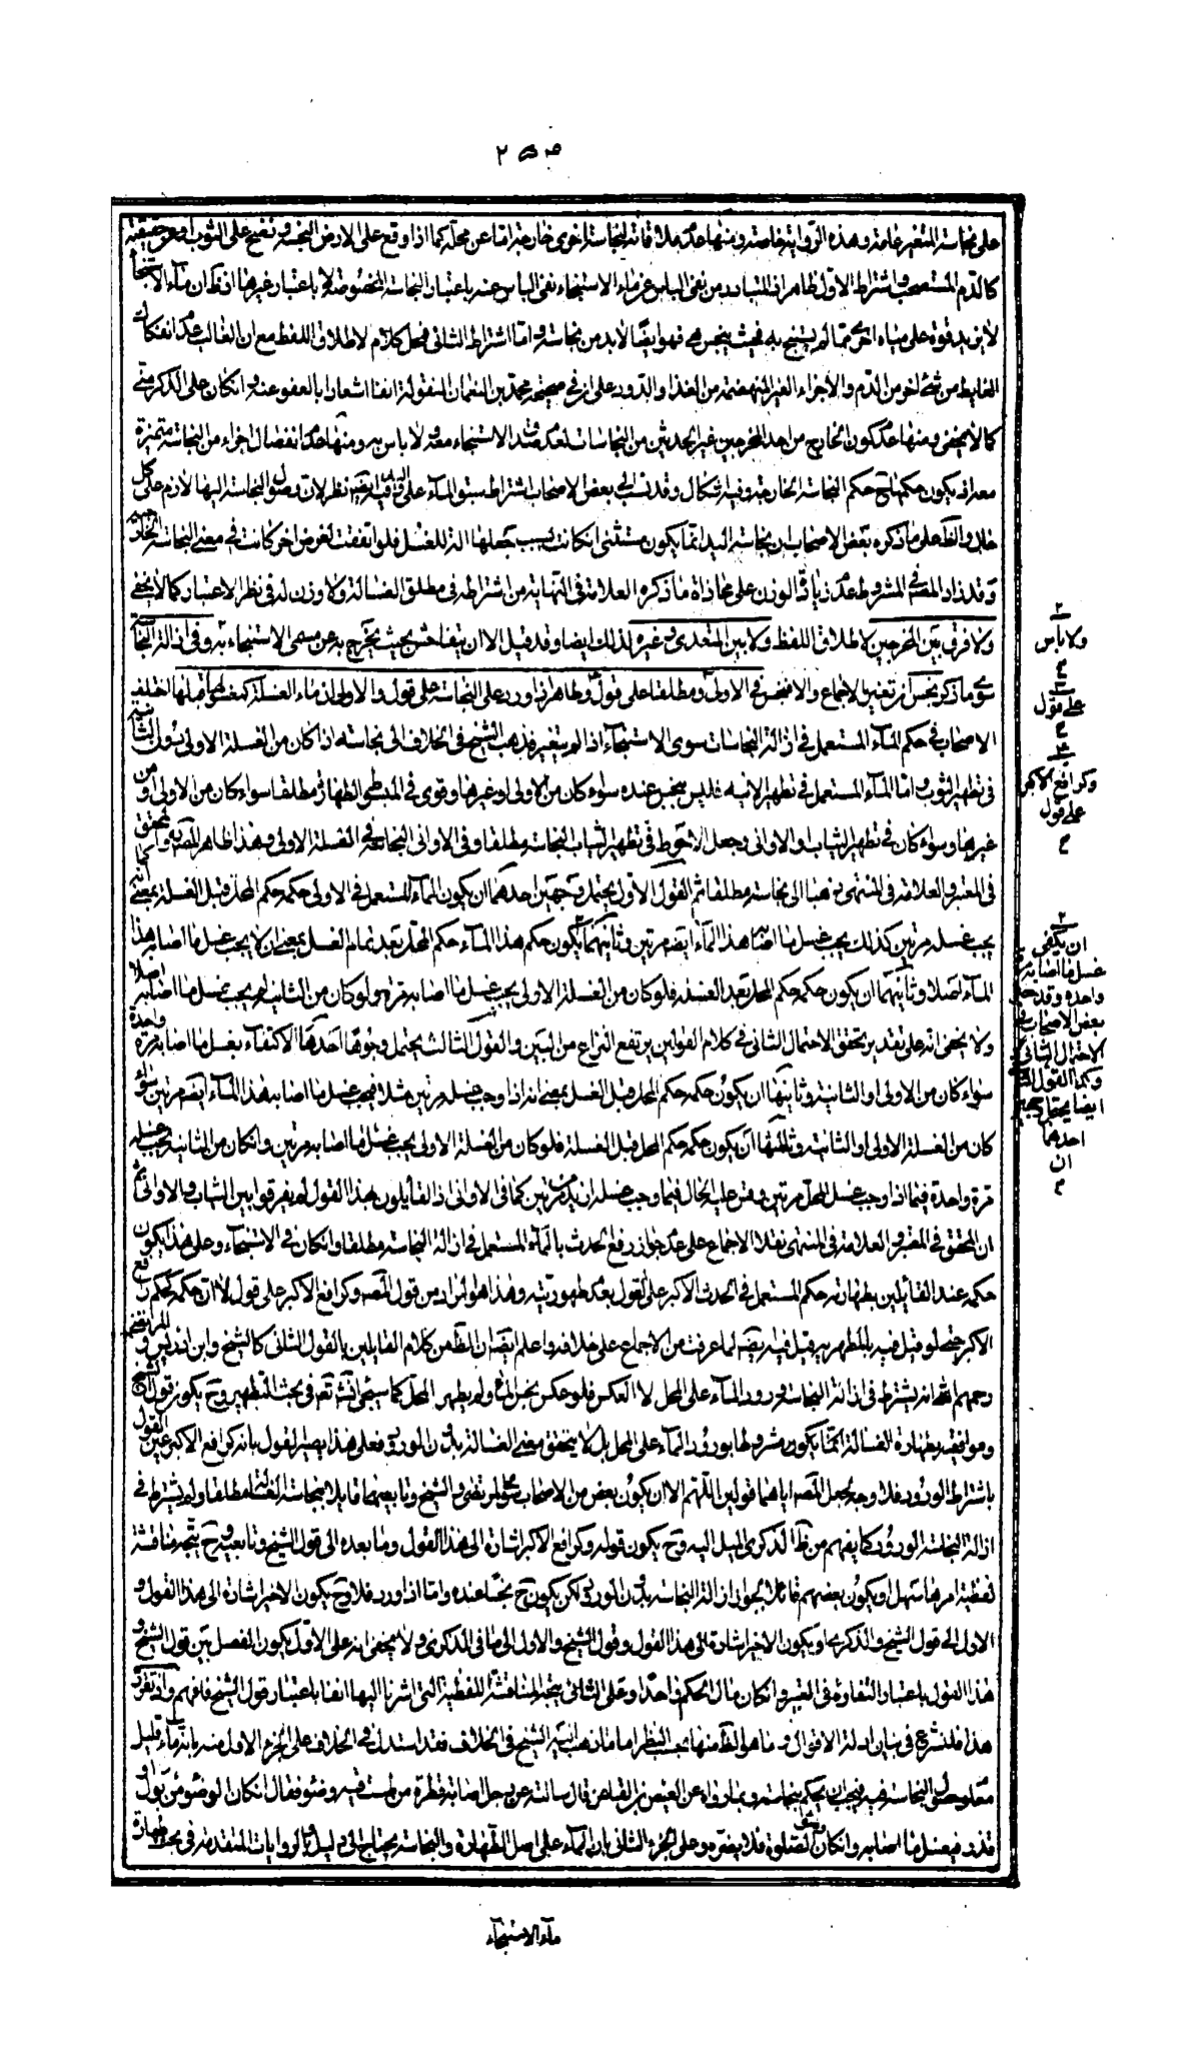 على نجاسة المتغير عامة وهذه الرواية خاصة ومنها عدم ملاقاته لنجاسة اخرى خارجة اما عن محله كما اذا وقع على الارض النجسة و على الثوب او عن حقيقته
كالدم المستصحب واشتراط الاول ظاهر اذ المتبادر من نفى الباس عن ماء الاستنجاء نفى الباس عنه باعتبار النجاسة المخصوصة لا باعتبار غيرها اذ ظ ان ماء الاستنجاء
لا يزيد قوة على مياه اخر مما لم يستنج به فحيث ينجس هى فهو ايضا لابد من نجاسته واما اشتراط الثانى فمحل كلام لاطلاق اللفظ مع ان الغالب عدم انفكاك
الغايط من شئ اخر من الدم والاجزاء الغير المنهضمة من الغذاء والدود على ان فى صحيحة محمد بن النعمان المنقولة انفا اشعارا بالعفو عنه وان كان على الذكر منى
كما لا يخفى ومنها عدم كون الخارج من احد المخرجين غير الحدثين من النجاسات لعدم صدق الاستنجاء معه ولا باس به ومنها عدم انفصال اجزاء من النجاسة متميزة
معه اذ يكون حكمها ح حكم النجاسة الخارجة وفيه اشكال وقد نسب الى بعض الاصحاب اشتراط سبق الماء على اليد وفيه ايضا نظر لان وصول النجاسة اليها لازم على كل
حال والظ على ما ذكره بعض الاصحاب ان نجاسة اليد انما يكون مستثنى ان كانت بسبب جعلها الة للغسل فلو اتفقت لغرض اخر كانت فى معنى النجاسة الخارجة
وقد زاد المص فى الشروط عدم زيادة الوزن على محاذاة ما ذكره العلامة فى النهاية من اشتراطه فى مطلق الغسالة ولا وزن له فى نظر الاعتبار كما لا يخفى
ولا فرق بين المخرجين لاطلاق اللفظ ولا بين المتعدى وغيره لذلك ايضا وقد قيل الا ان يتفاحش بحيث يخرج به عن مسمى الاستنجاء وفى ازالة النجاسة
سوى ما ذكر نجس ان تغير بالاجماع والا فنجس فى الاولى ومطلقا على قول وطاهر اذا ورد على النجاسة على قول والاولى ان ماء الغسلة كمغسولها قبلها اختلف
الاصحاب فى حكم الماء المستعمل فى ازالة النجاسات سوى الاستنجاء اذا لم يتغير فذهب الشيخ فى الخلاف الى نجاسته اذا كان من الغسلة الاولى دون الثانية
فى تطهير الثوب واما الماء المستعمل فى تطهير الانية فليس بنجس عنده سواء كان من الاولى او غيرها وقوى فى المبسوط الطهارة مطلقا سواء كان من الاولى او من
غيرها وسواء كان فى تطهير الثياب او الاوانى وجعل الاحوط فى تطهير الثياب النجاسة مطلقا وفى الاوانى النجاسة فى الغسلة الاولى وهذا ظاهر المص والمحقق
فى المعتبر والعلامة فى المنتهى ذهبا الى نجاسته مطلقا ثم القول الاول يحتمل وجهين احدهما ان يكون الماء المستعمل فى الاولى حكمه حكم المحل قبل الغسلة بمعنى انه كما
يجب غسله مرتين كذلك يجب غسل ما اصابه هذا الماء ايضا مرتين وثانيهما ان يكون حكم هذا الماء حكم المحل بعد تمام الغسل بمعنى ان لا يجب غسل ما اصابه هذا
الماء اصلا وثانيهما ان يكون حكمه حكم المحل بعد الغسلة فلو كان من الغسلة الاولى يجب غسل ما اصابه مرة ولو كان من الثانية لم يجب غسل ما اصابه اصلا
ولا يخفى انه على تقدير تحقق الاحتمال الثانى فى كلام القولين يرتفع النزاع من البين والقول الثالث يحتمل وجوها احدها الاكتفاء بغسل ما اصابه مرة واحدة
سواء كان من الاولى او الثانية وثانيها ان يكون حكمه حكم المحل قبل الغسل بمعنى انه اذا وجب غسله مرتين مثلا فيجب غسل ما اصابه هذا الماء ايضا مرتين سواء
كان من الغسلة الاولى او الثانية وثالثها ان يكون حكمه حكم المحل قبل الغسلة فلو كان من الغسلة الاولى يجب غسل ما اصابه مرتين وان كان من الثانية يجب غسله
مرة واحدة فيما اذا وجب غسل المحل مرتين وقس عليه الحال فيما وجب غسله ازيد من مرتين كما فى الاوانى اذ القائلون بهذا القول لم يفرقوا بين الثياب والاوانى ثم
ان المحقق فى المعتبر والعلامة فى المنتهى نقلا الاجماع على عدم جواز رفع الحدث بالماء المستعمل فى ازالة النجاسة مطلقا وان كان فى الاستنجاء وعلى هذا يكون
حكمه عند القائلين بطهارته حكم المستعمل فى الحدث الاكبر على القول بعدم طهوريته وهذا هو المراد من قول المص وكرافع الاكبر على قول لا ان حكمه كحكم رافع
الاكبر حتى لو قيل فيه بالمطهرية قيل فيه ايضا لما عرفت من الاجماع على خلافه واعلم ايضا ان الظ من كلام القايلين بالقول الثانى كالشيخ وابن ادريس والمرتضى
رحمهم الله انه يشترط فى ازالة النجاسة ورود الماء على المحل لا العكس فلو عكس نجس الماء ولم يطهر المحل كما سيجئ انشاء الله تعالى فى بحث التطهير وح يكون قول الشيخ
وموافقيه بطهارة الغسالة انما يكون مشروطا بورود الماء على المحل بل لا يتحقق معنى الغسالة بدون الورود فعلى هذا يصير القول بانه كرافع الاكبر عين القول
باشتراط الورود فلا وجه لجعل المص اياهما قولين اللهم الا ان يكون بعض من الاصحاب سوى المرتضى والشيخ وتابعيهما قايلا بنجاسة الغسالة مطلقا ولم يشترط فى
ازالة النجاسة الورود كما يفهم من ظ الذكرى الميل اليه وح يكون قوله وكرافع الاكبر اشارة الى هذا القول وما بعده الى قول الشيخ وتابعيه وح يتجه مناقشة
لفظية امرها سهل او يكون بعضهم قائلا بجواز ازالة النجاسة بدون الورود لكن يكون ح نجسا عنده واما اذا ورد فلا وح يكون الاخير اشارة الى هذا القول و
الاول الى قول الشيخ والذكرى او يكون الاخير اشارة الى هذا القول وقول الشيخ والاول الى ما فى الذكرى ولا يخفى انه على الاول يكون الفصل بين قول الشيخ و
هذا القول باعتبار التفاوت فى التعبير وان كان مال الحكم واحدا وعلى الثانى يتجه المناقشة اللفظية التى اشرنا اليها انفا باعتبار قول الشيخ فافهم واذ تقرر
هذا فلنشرع فى بيان ادلة الاقوال وما هو الظ منها بحسب النظر اما ما ذهب اليه الشيخ فى الخلاف فقد استدل فى الخلاف على الجزء الاول منه بانه ماء قليل
معلوم حصول النجاسة فيه فيجب ان يحكم بنجاسته وبما رواه عن العيص بن القاسم قال سالته عن رجل اصابه قطرة من طست فيه وضوء فقال ان كان الوضوء من بول او
قذر فيغسل ما اصابه وان كان وضوئه للصلوة فلا يضره وعلى الجزء الثانى بان الماء على اصل الطهارة والنجاسة يحتاج الى دليل وبالروايات المتقدمة فى بحث طهارة
ماء الاستنجاء
ولا باس
على قول
وكرافع الاكبر
على قول
ان يكفى
غسل ما اصابه مرة
واحدة وقد
بعض الاصحاب
الاحتمال الثانى
وكذا القول
ايضا يحتمل
احدهما
ان